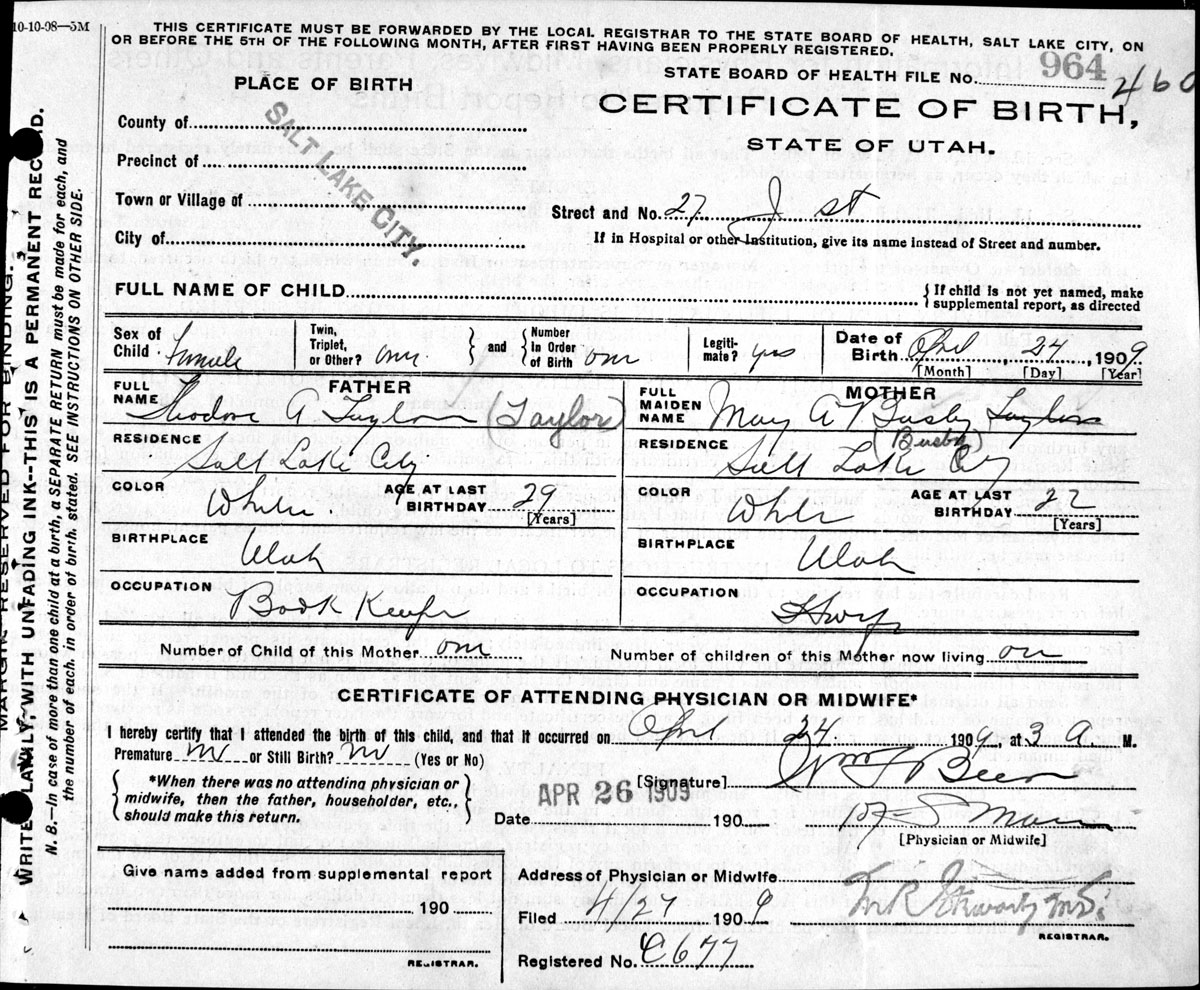 10-10-98—5M
THIS CERTIFICATE MUST BE FORWARDED BY THE LOCAL REGISTRAR TO THE STATE BOARD OF HEALTH, SALT LAKE CITY, ON
OR BEFORE THE 5TH OF THE FOLLOWING MONTH, AFTER FIRST HAVING BEEN PROPERLY REGISTERED.
STATE BOARD OF HEALTH FILE No. 964 460
PLACE OF BIRTH
CERTIFICATE OF BIRTH,
STATE OF UTAH.
County of
Precinct of
Town or Village of
City of
SALT LAKE CITY.
Street and No. 27 J st
If in Hospital or other Institution, give its name instead of Street and number.
FULL NAME OF CHILD
{ If child is not yet named, make
supplemental report, as directed
Sex of Child Female
Twin, Triplet, or Other? one } and { Number In Order of Birth one
Legitimate? yes
Date of Birth April 24 1909
[Month] [Day] [Year]
FATHER
FULL NAME Theodore A Taylor (Taylor)
RESIDENCE Salt Lake City
COLOR White AGE AT LAST BIRTHDAY 29 [Years]
BIRTHPLACE Utah
OCCUPATION Book Keeper
MOTHER
FULL MAIDEN NAME May A V Busby Taylor
(Busby)
RESIDENCE Salt Lake City
COLOR White AGE AT LAST BIRTHDAY 22 [Years]
BIRTHPLACE Utah
OCCUPATION Hwife
Number of Child of this Mother one
Number of children of this Mother now living one
CERTIFICATE OF ATTENDING PHYSICIAN OR MIDWIFE*
I hereby certify that I attended the birth of this child, and that it occurred on April 24 1909, at 3 A M.
Premature? no or Still Birth? no (Yes or No)
{ *When there was no attending physician or
midwife, then the father, householder, etc.,
should make this return. }
[Signature] Wm F Beer
APR 26 1909
Date 190
[Physician or Midwife]
Give name added from supplemental report
190
REGISTRAR.
Address of Physician or Midwife
Filed 4/27 1909
REGISTRAR.
Registered No. C677
MARGIN RESERVED FOR BINDING.
WRITE PLAINLY, WITH UNFADING INK--THIS IS A PERMANENT RECORD.
N. B.—In case of more than one child at a birth, a SEPARATE RETURN must be made for each, and
the number of each, in order of birth, stated. SEE INSTRUCTIONS ON OTHER SIDE.